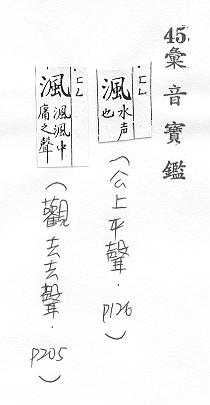 45.彙音寶鑑
渢 水声也
(公上平聲.p126)
渢 渢渢中庸之聲
(觀去去聲.p205)